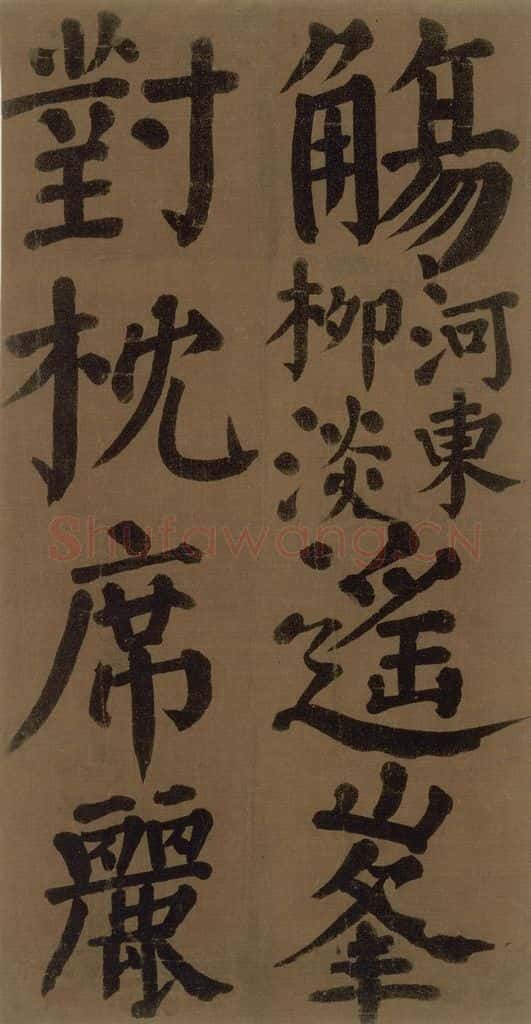 觴河東
柳淡遥峯
對枕席麗
Shufawang.CN